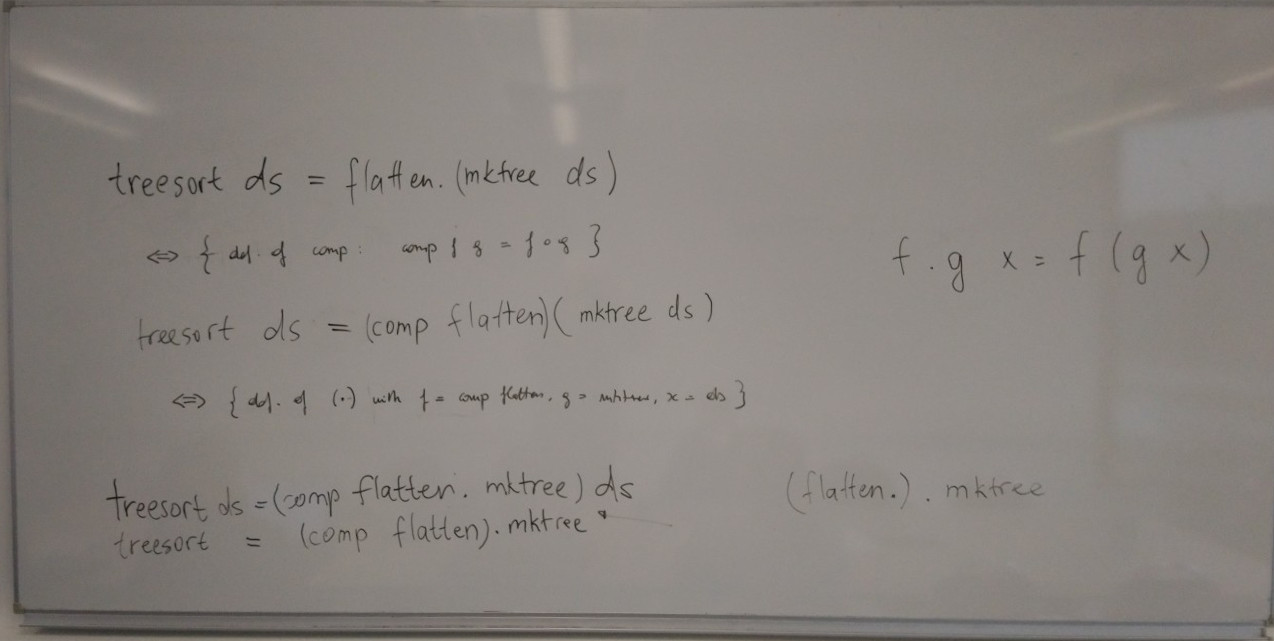 treesort ds = flatten. (mktree ds)
⇔ { def. of comp: comp f g = f∘g }
f . g x = f (g x)
treesort ds = (comp flatten)( mktree ds )
⇔ { def. of (.) with f = comp flatten, g = mktree, x = ds }
treesort ds = (comp flatten. mktree) ds
(flatten.) . mktree
treesort = (comp flatten). mktree